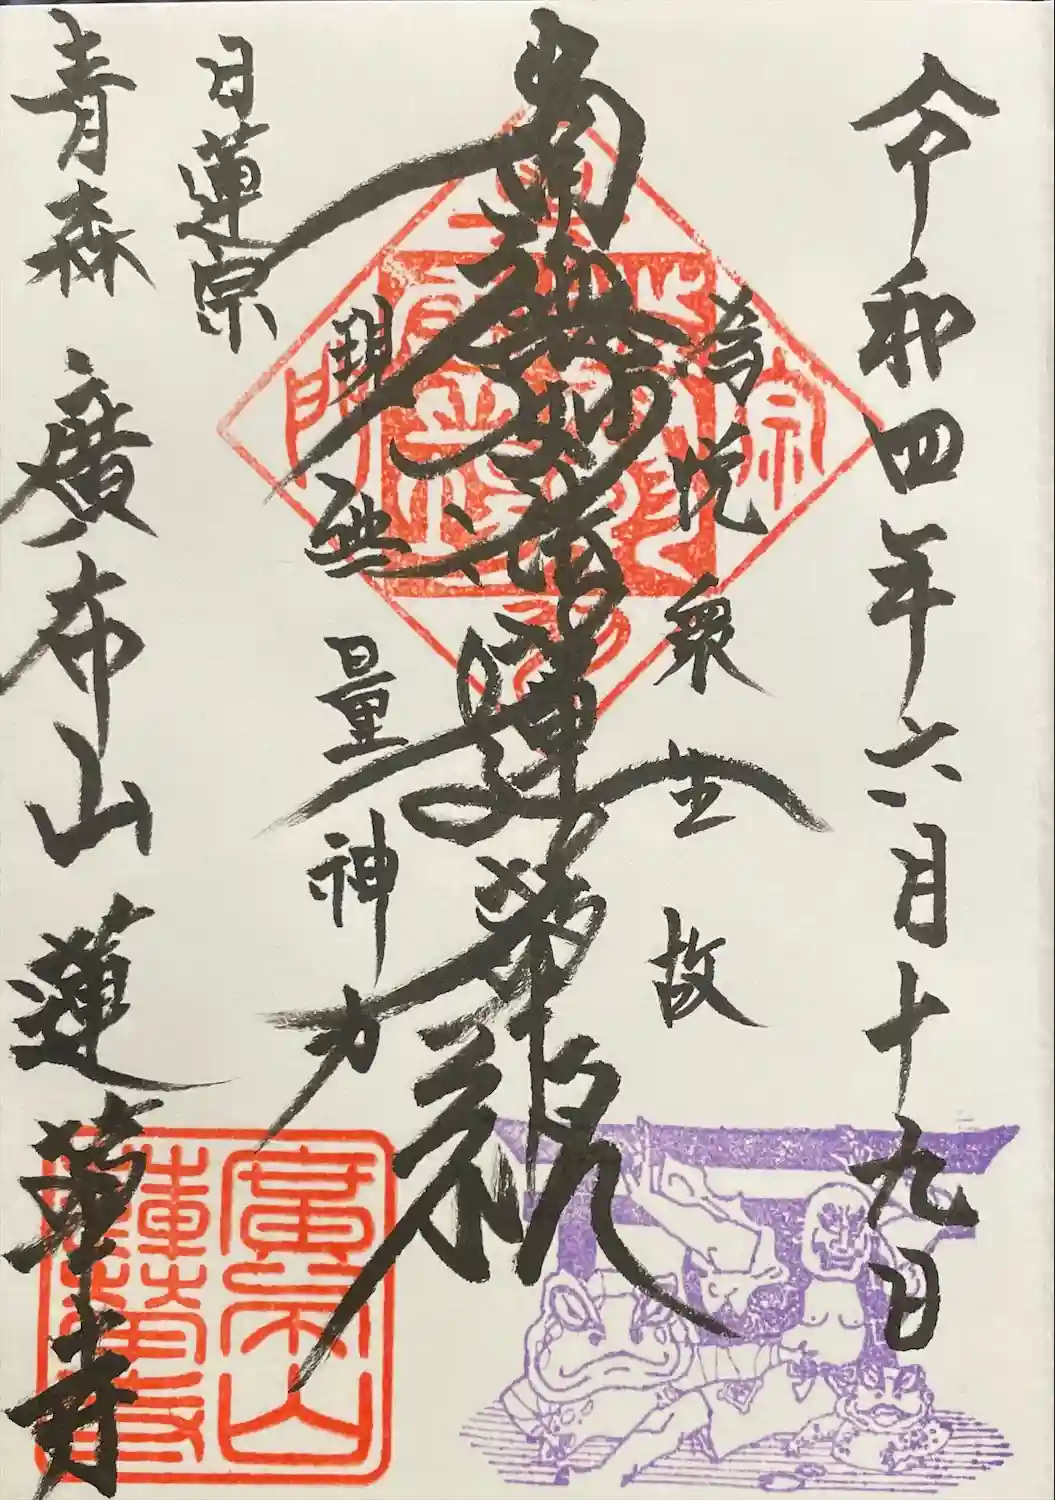 令和四年六月十九日
為悦衆生故
南無妙法蓮華経
現無量神力
日蓮宗
青森 廣布山 蓮華寺
廣布山
蓮華寺